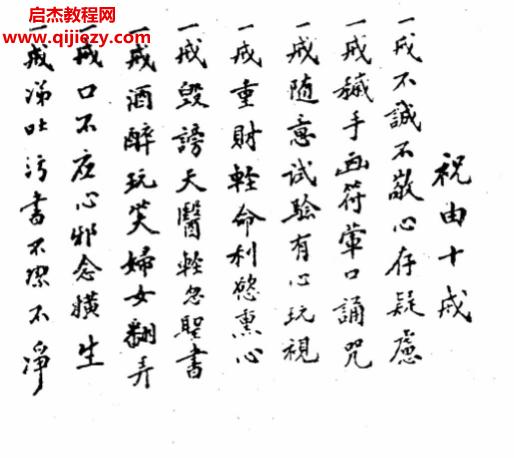 启杰教程网
www.qijiezy.com
祝由十戒
一戒不誠不敬心存疑慮
一戒穢手画符葷口誦咒
一戒随意試驗有心玩視
一戒重財輕命利慾熏心
一戒毀謗天醫輕忽聖書
一戒酒醉玩笑婦女翻弄
一戒口不应心邪念橫生
一戒涕吐污書不潔不淨